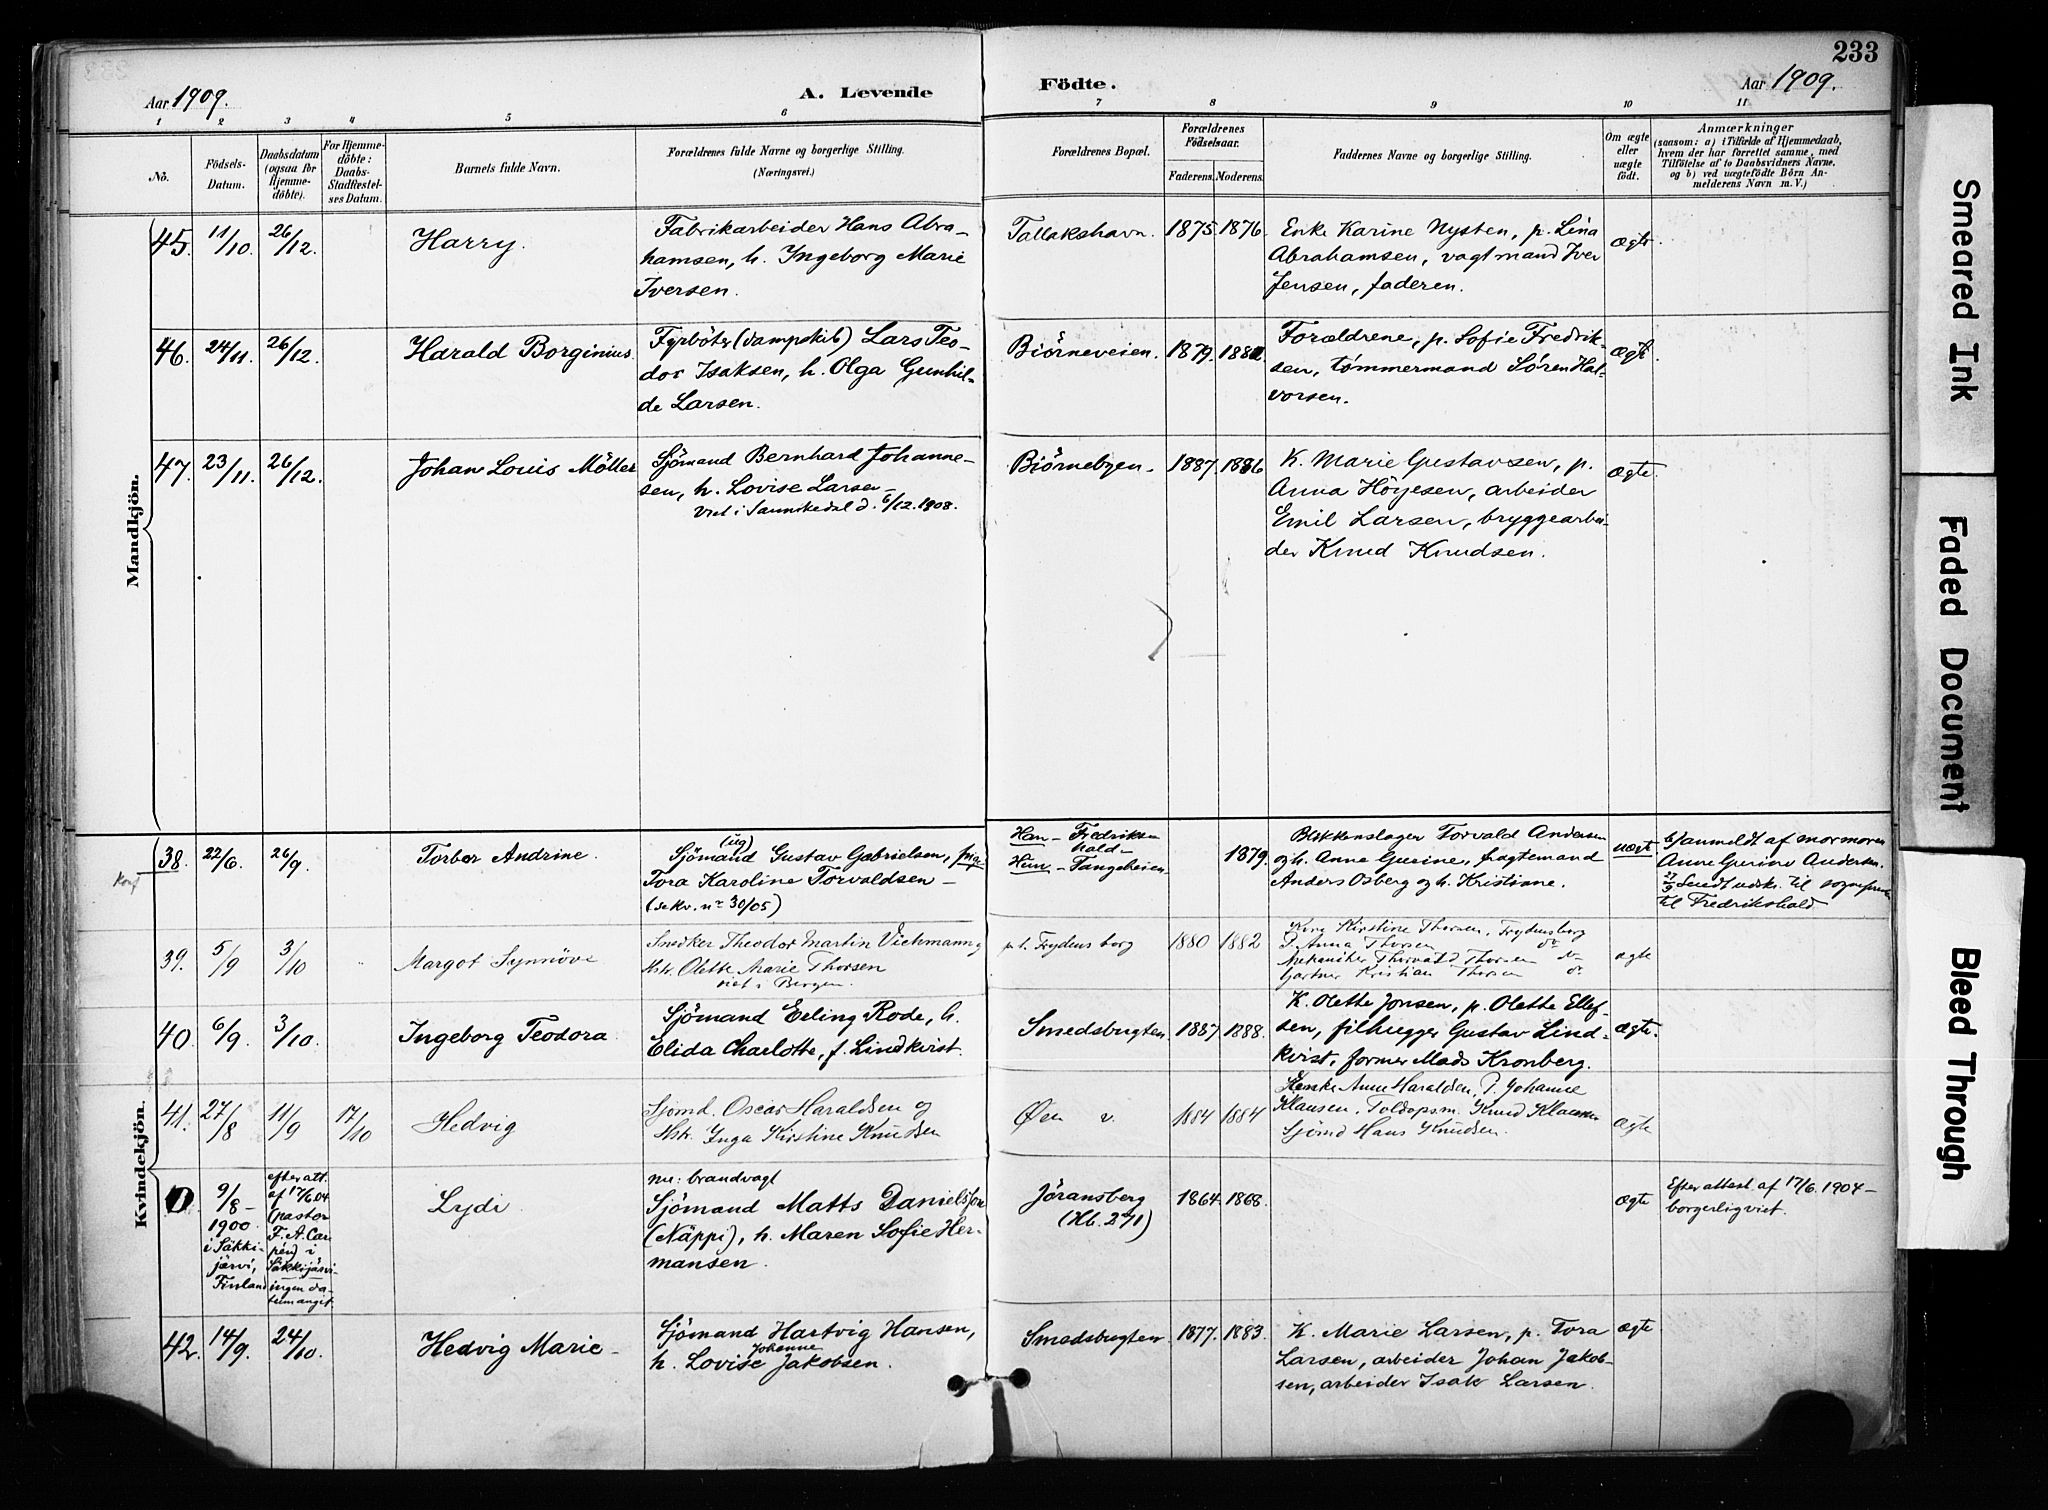 233
Aar 1909.
A. Levende
Födte.
Aar 1909.
1 2 3 4 5 6 7 8 9 10 11
No.
Födsels-
Datum.
Daabsdatum
(ogsaa for
Hjemme-
döbte).
For Hjemme-
döbte:
Daabs-
Stadfæstel-
ses Datum.
Barnets fulde Navn.
Forældrenes fulde Navne og borgerlige Stilling.
(Næringsvei.)
Forældrenes Bopæl.
Forældrenes
Födselsaar.
Faderens. Moderens.
Faddernes Navne og borgerlige Stilling.
Om ægte
eller
uægte
födt.
Anmærkninger
(saasom: a) i Tilfælde af Hjemmedaab,
hvem der har forrettet samme, med
Tilföielse af to Daabsvidners Navne,
og b) ved uægtefödte Börn An-
melderens Navn m. V.)
Mandkjön.
45. 11/10. 26/12. Harry.
Fabrikarbeider Hans Abra-
hamsen, h. Ingeborg Marie
Iversen.
Tallakshavn. 1875. 1876.
Enke Karine Nysten, p. Lina
Abrahamsen, vagtmand Iver
Jensen, faderen.
ægte.
46. 24/11. 26/12. Harald Borginius.
Fyrböter (dampskib) Lars Teo-
dor Isaksen, h. Olga Gunhil-
de Larsen.
Biörneveien. 1879.
Forældrene, p. Sofie Fredrik-
sen, tømmermand Søren Hal-
vorsen.
ægte.
47. 23/11. 26/12. Johan Louis Möller
Sjömand Bernhard Johanne-
sen, h. Lovise Larsen
viet i Sannikedal d. 6/12. 1908.
Biörnebyen. 1887. 1886
K. Marie Gustavsen, p.
Anna Höyesen, arbeider
Emil Larsen, bryggearbei-
der Knud Knudsen.
ægte.
Kvindekjön.
38. 22/6. 26/9. Torbor Andrine.
Konf
(ug)
Sjömand Gustav Gabrielsen, pige
Tora Karoline Torvaldsen
(se Kv. nr 30/05)
Han - Fredriks-
hald-
Hun - Tangeheien
1879.
Blikkenslager Torvald Andersen
og h. Anne Gurine, fragtemand
Anders Osberg og h. Kristiane.
uægte.
b) anmeldt af mormoren
Anne Gurine Andersen.
27/9 Sendt udskr. til sogneprest
til Fredrikshald
39. 5/9 3/10 Margot Synnöve
Snedker Theodor Martin Vichmann og
Hstr. Olette Marie Thorsen
viet i Bergen.
p.t. Frydensborg 1880 1882
Kone Kirstine Thorsen, Frydensborg
P. Anna Thorsen do
Mekaniker Thorvald Thorsen do
Gartner Kristian Thorsen do
ægte
40. 6/9. 3/10. Ingeborg Teodora.
Sjömand Erling Rode, h.
Elida Charlotte, f. Lindkvist.
Smedsbugten 1887 1888.
K. Olette Jonsen, p. Olette Ellef-
sen, filhugger Gustav Lind-
kvist, former Mads Kronberg.
ægte.
41. 27/8 11/9 17/10 Hedvig
Sjömd. Oscar Haraldsen og
Hstr. Inga Kirstine Knudsen
Øen v. 1884 1884
Enke Anne Haraldsen, P. Johanne
Klausen, Toldopsm. Knud Klausen
Sjömd Hans Knudsen.
ægte
0 9/8-
1900.
i Säkki-
järvi,
Finland
efter att.
af 17/6.04.
(pastor
F. A. Car-
pén) i
Säkkijärvi-
ingen da-
tum angit.
Lydi
nu: brandvagt
Sjömand Matts Danielsson
(Näppi), h. Maren Sofie Her-
mansen.
Jöransberg
(Hb. 271)
1864. 1868.
ægte
Efter attest af 17/6. 1904-
borgerlig viet.
42. 14/9. 24/10. Hedvig Marie-
Sjömand Hartvig Hansen,
Johanne
h. Lovise Jakobsen.
Smedsbugten 1877. 1883.
K. Marie Larsen, p. Tora
Larsen, arbeider Johan Jakob-
sen, arbeider Isak Larsen.
ægte
Smeared Ink
Faded Document
Bleed Through